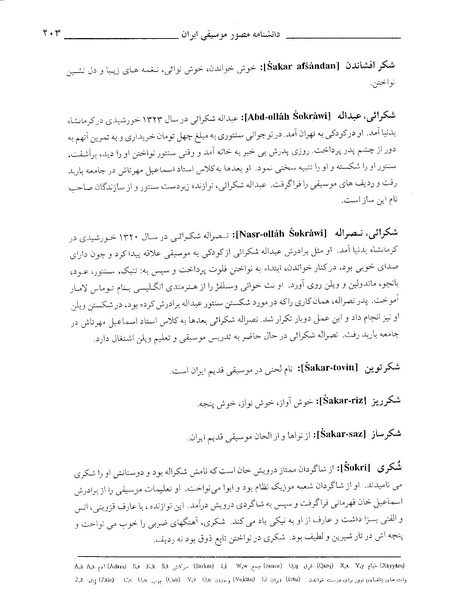 دانشنامه مصور موسیقی ایران ۲۰۳
شکر افشاندن [Šakar afšândan]: خوش خواندن، خوش نوائی، نغمه های زیبا و دل نشین
نواختن.
شکرائی، عبداله [Abd-ollâh Šokrâwi]: عبداله شکرائی در سال ۱۳۲۳ خورشیدی در کرمانشاه
بدنیا آمد. او در کودکی به تهران آمد. در نوجوانی سنتوری به مبلغ چهل تومان خریداری و به تمرین آنهم به
دور از چشم پدر پرداخت. روزی پدرش بی خبر به خانه آمد و وقتی سنتور نواختن او را دید، برآشفت.
سنتور او را شکسته و او را تنبیه سختی نمود. او بعدها به کلاس استاد اسماعیل مهرتاش در جامعه باربد
رفت و ردیف های موسیقی را فراگرفت. عبداله شکرائی، نوازنده زبردست سنتور و از سازندگان صاحب
نام این ساز است.
شکرائی، نصراله [Nasr-ollâh Šokrâwi]: نصراله شکرائی در سال ۱۳۲۰ خورشیدی در
کرمانشاه بدنیا آمد. او مثل برادرش عبداله شکرائی از کودکی به موسیقی علاقه پیدا کرد و چون دارای
صدای خوبی بود، در کنار خواندن، ابتداء به نواختن فلوت پرداخت و سپس به: تنبک، سنتور، عود،
بانجو، ماندولین و ویلن روی آورد. او نت خوانی وسلفژ را از هنرمندی انگلیسی بنام توماس لامار
آموخت. پدر نصراله، همان کاری را که در مورد شکستن سنتور عبداله برادرش کرده بود، در شکستن ویلن
او نیز انجام داد و این عمل دوبار تکرار شد. نصراله شکرائی بعدها به کلاس استاد اسماعیل مهرتاش در
جامعه باربد رفت. نصراله شکرائی در حال حاضر به تدریس موسیقی و تعلیم ویلن اشتغال دارد.
شکر توین [Šakar-tovin]: نام لحنی در موسیقی قدیم ایران است.
شکر ریز [Šakar-riz]: خوش آواز، خوش نواز، خوش پنجه.
شکر ساز [Šakar-saz]: از نواها و از الحان موسیقی قدیم ایران.
شُکری [Šokri]: از شاگردان ممتاز درویش خان است که نامش شکراله بود و دوستانش او را شکری
می نامیدند. او از شاگردان شعبه موزیک نظام بود و ابوا می نواخت. او تعلیمات موسیقی را از برادرش
اسماعیل خان قهرمانی فراگرفت و سپس به شاگردی درویش درآمد. این نوازنده، با عارف قزوینی، انس
و الفتی بسزا داشت و عارف از او به نیکی یاد می کند. شکری، آهنگهای ضربی را خوب می نواخت و
پنجه اش در تار شیرین و لطیف بود. شکری در نواختن تابع ذوق بود نه ردیف.